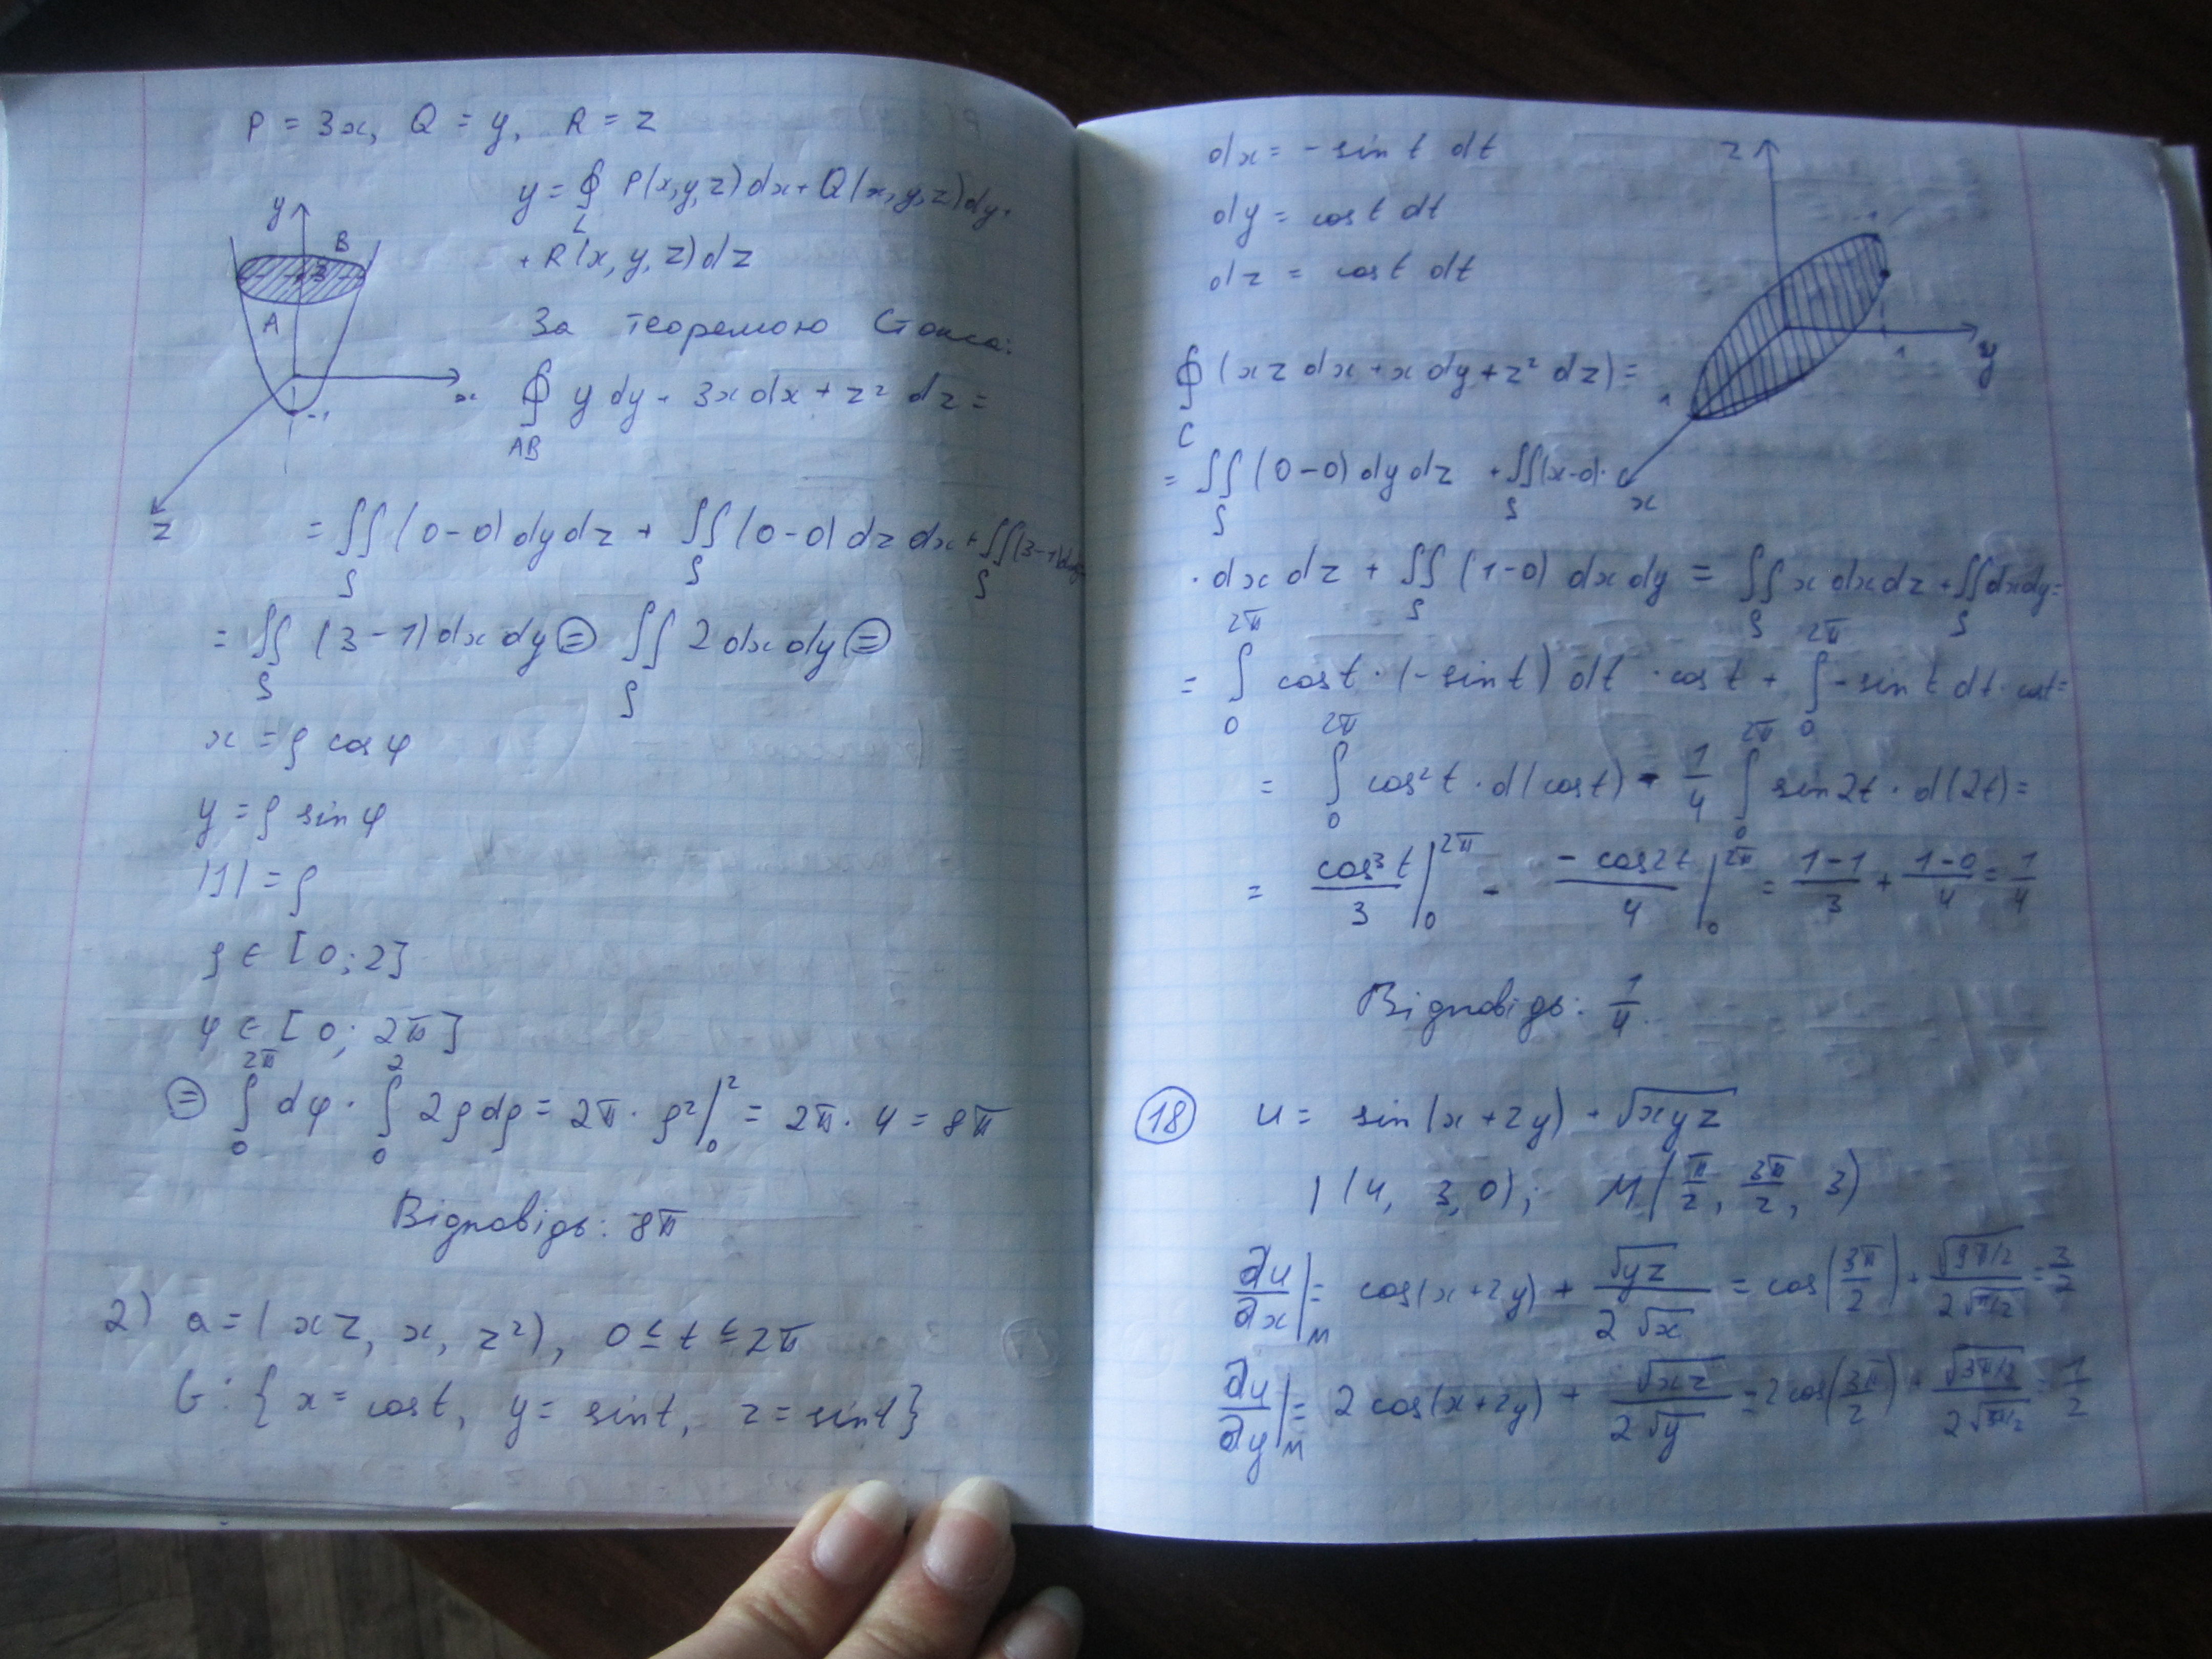 P = 3x, Q = y, R = z
y = ∮_L P(x,y,z)dx + Q(x,y,z)dy +
+ R(x,y,z)dz
y
B
3
A
x
-1
z
За теоремою Стокса:
∮_AB y dy + 3x dx + z² dz =
= ∬_S (0-0) dy dz + ∬_S (0-0) dz dx + ∬_S (3-1) dxdy
= ∬_S (3-1) dx dy ⊜ ∬_S 2 dx dy ⊜
x = ρ cos φ
y = ρ sin φ
|J| = ρ
ρ ∈ [0; 2]
φ ∈ [0; 2π]
⊜ ∫_0^{2π} dφ · ∫_0^2 2ρdρ = 2π · ρ²|_0^2 = 2π · 4 = 8π
Відповідь: 8π
2) a = (xz, x, z²), 0 ≤ t ≤ 2π
G: {x = cost, y = sint, z = sint}
dx = - sin t dt
dy = cos t dt
dz = cos t dt
z
1
y
1
x
∮_C (xz dx + x dy + z² dz) =
= ∬_S (0-0) dy dz + ∬_S (x-0) ·
· dx dz + ∬_S (1-0) dx dy = ∬_S x dx dz + ∬_S dxdy =
= ∫_0^{2π} cos t · (-sin t) dt · cos t + ∫_0^{2π} -sin t dt · cost =
= ∫_0^{2π} cos² t · d(cos t) - 1/4 ∫_0^{2π} sin 2t · d(2t) =
= cos³ t/3 |_0^{2π} - (-cos2t)/4 |_0^{2π} = (1-1)/3 + (1-0)/4 = 1/4
Відповідь: 1/4.
(18) u = sin(x + 2y) + √xyz
l (4, 3, 0); M(π/2, 3π/2, 3)
∂u/∂x |_M = cos(x + 2y) + √yz/(2√x) = cos(3π/2) + √(9π/2)/(2√(π/2)) = 3/2
∂u/∂y |_M = 2 cos(x + 2y) + √xz/(2√y) = 2 cos(3π/2) + √(3π/2)/(2√(3π/2)) = 1/2